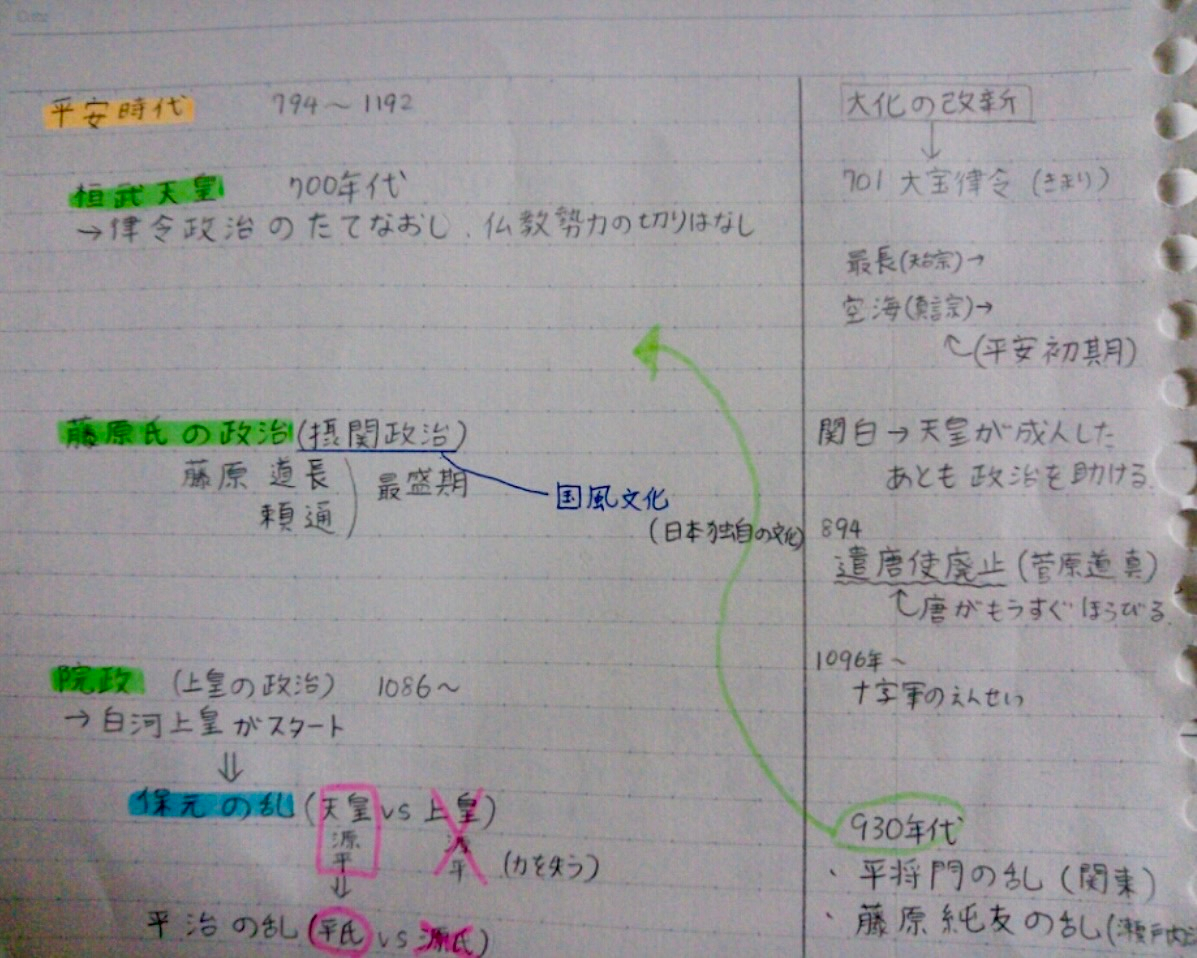 平安時代 794～1192
桓武天皇 700年代
→律令政治のたてなおし、仏教勢力の切りはなし
藤原氏の政治(摂関政治)
藤原道長
頼通
最盛期
国風文化
(日本独自の文化)
院政 (上皇の政治) 1086～
→白河上皇がスタート
⇓
保元の乱(天皇vs上皇)
源 源
平 平 (力を失う)
⇓
平治の乱(平氏vs源氏)
大化の改新
↓
701 大宝律令(きまり)
最長(天台宗)→
空海(真言宗)→
(平安初期)
関白→天皇が成人した
あとも政治を助ける
894
遣唐使廃止(菅原道真)
唐がもうすぐほろびる
1096年～
十字軍のえんせい
930年代
・平将門の乱(関東)
・藤原純友の乱(瀬戸内